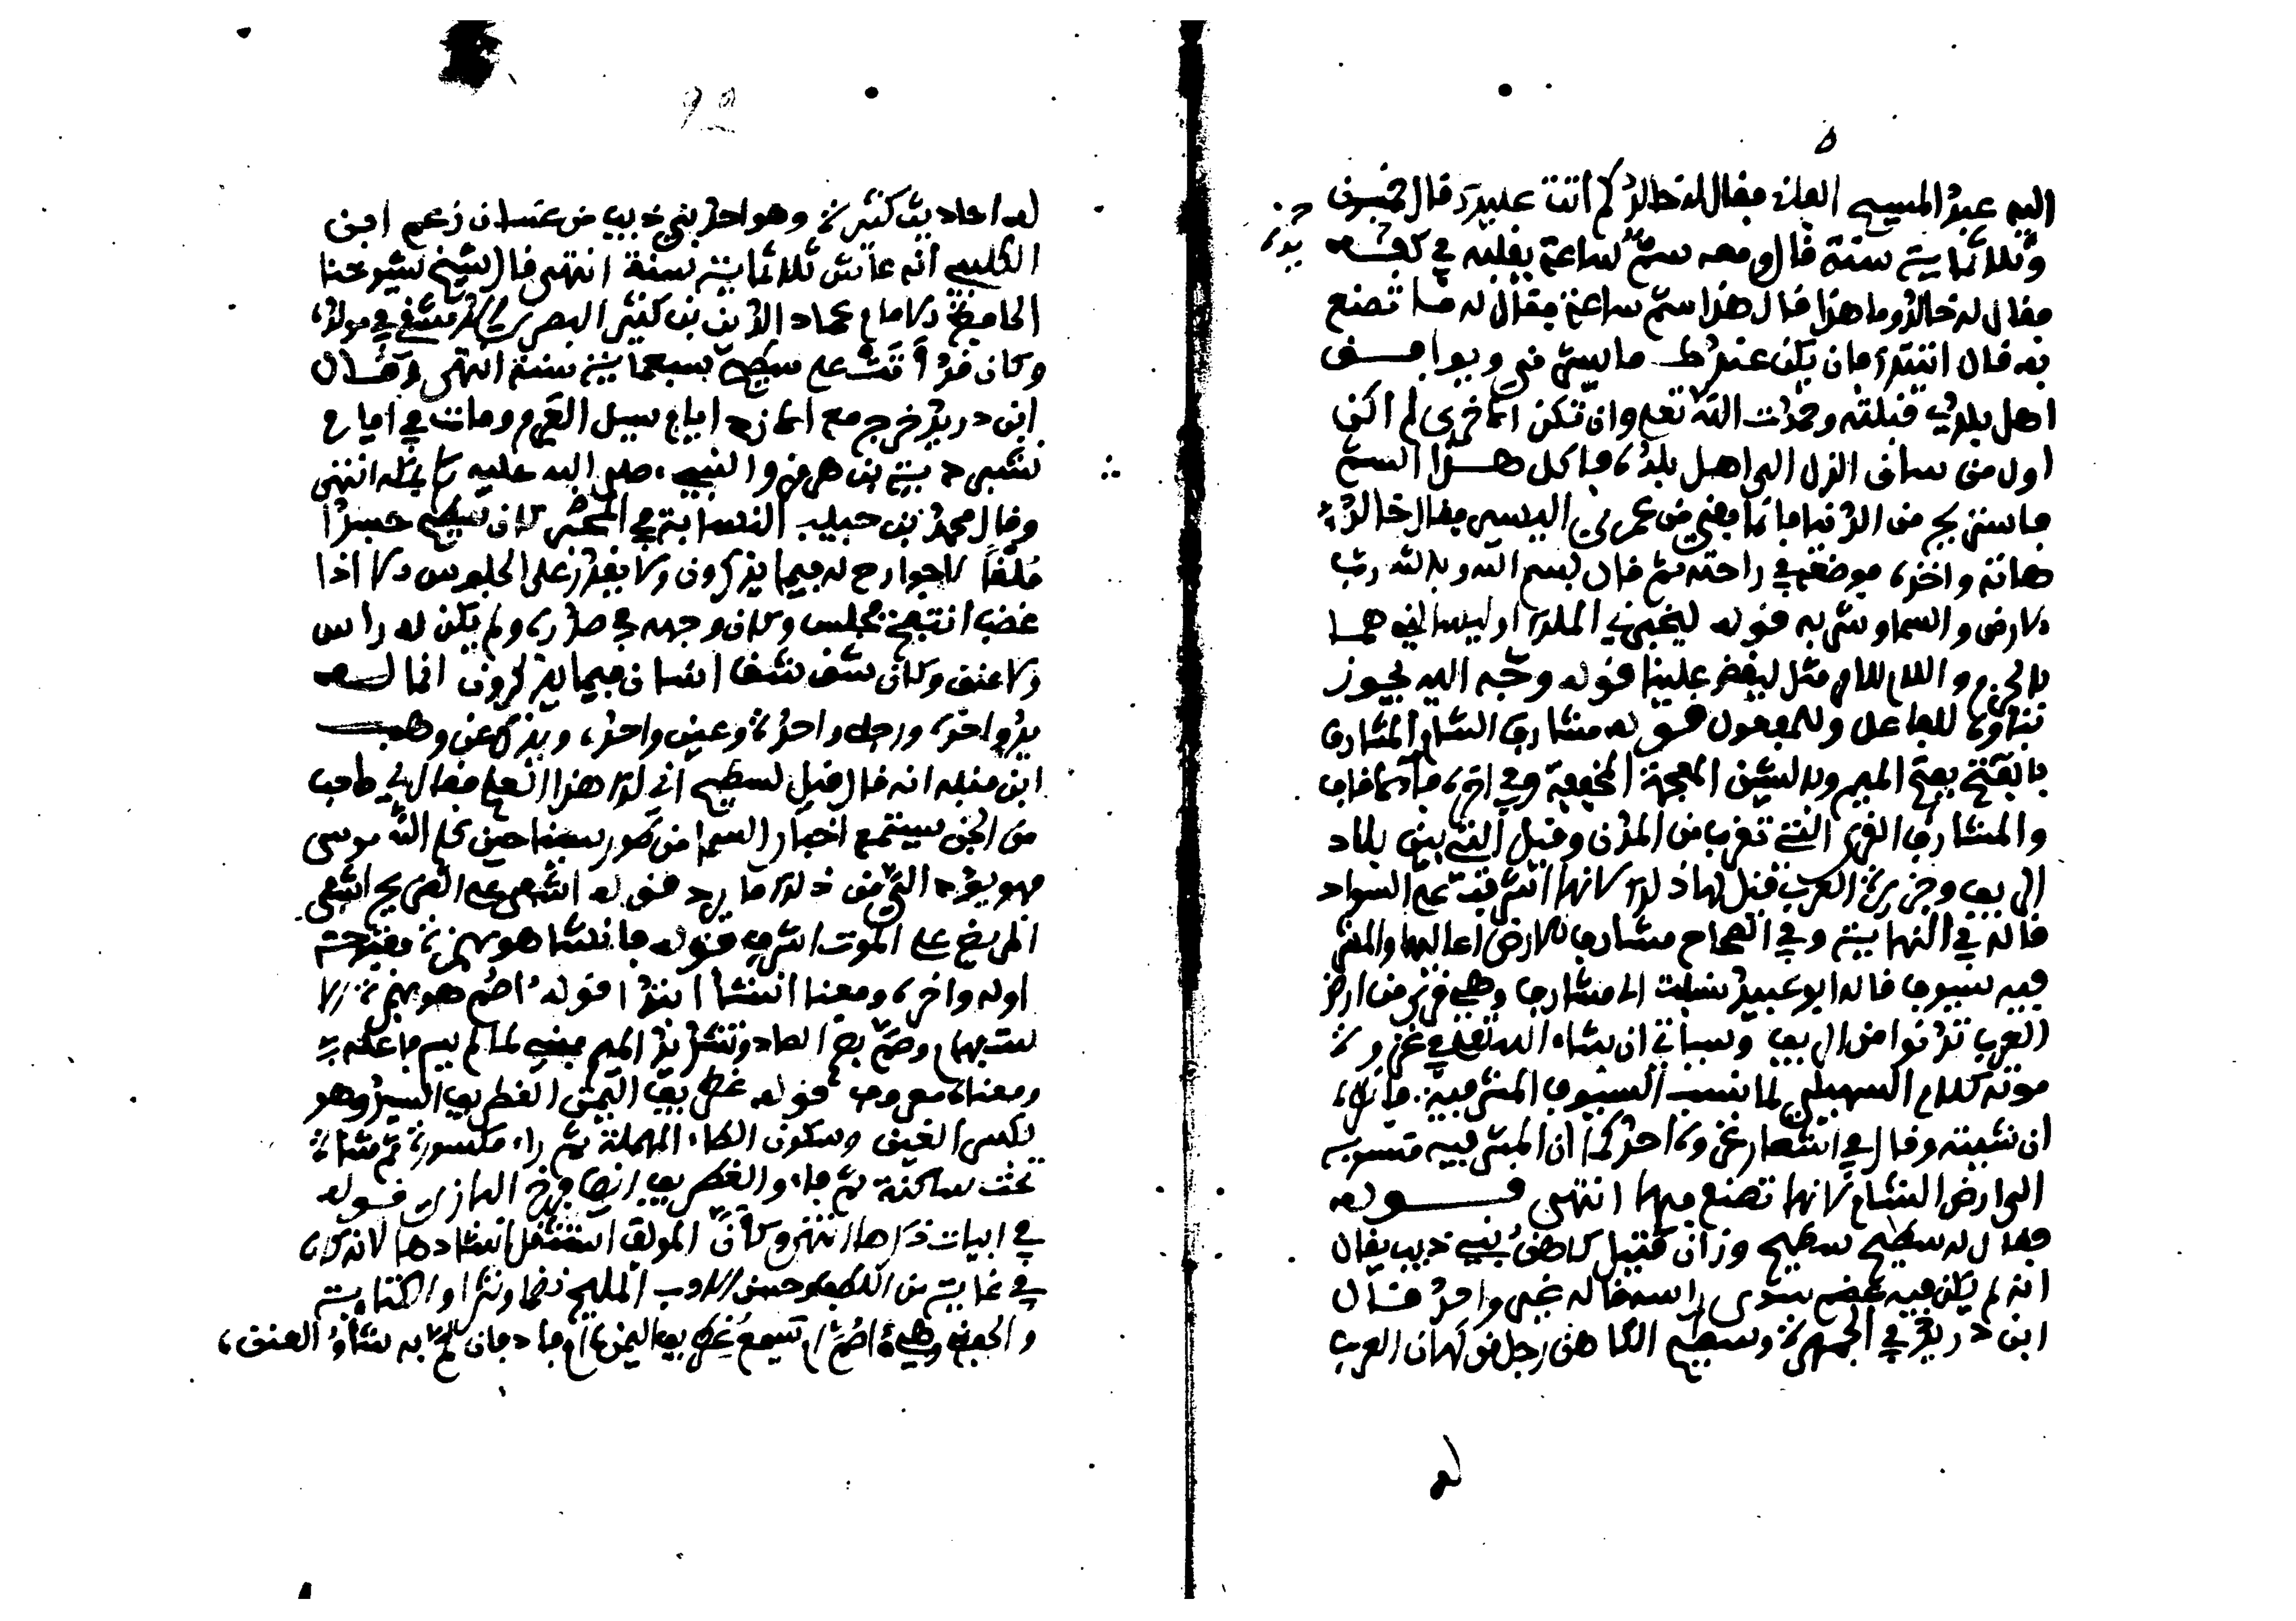 اليه عبد المسيح الغلة فقال له خالد كم اتت عليك قال خمسون
وثلاثماية سنة قال ومعه سم ساعة يقلبه في كفه
فقال له خالد وما هذا قال هذا سم ساعة فقال له ما تصنع
به قال انتظر فان يكن عندك ما يسرني ويوافق
اهل بلدي قبلته وحمدت الله تعلى وان تكن الاخرى لم اكن
اول من ساق الذل الى اهل بلده فاكل هذا السم
فاستريح من الدنيا فانما بقي من عمري اليسير فقال خالد
هاته واخذه فوضعه في راحته ثم قال بسم الله وبالله رب
الارض والسما وشربه قوله ليخبرني الملك او ليسالني هما
بالجزم واللام للامر مثل ليقض علينا قوله وجه اليه يجوز
بناوه للفاعل وللمفعول قوله مشارف الشام المشارف
بالفتح بفتح الميم وبالشين المعجمة المخففة وفي اخره فا
والمشارف القرى التي تقرب من المدن وقيل التي بين بلاد
الريف وجزيرة العرب قيل لها ذلك لانها اشرفت على السواد
قاله في النهاية وفي الصحاح مشارف الارض اعاليها والمشر
فيه سيوف قال ابو عبيد نسبت الى مشارف وهي قرى من ارض
العرب تدنوا من الريف وسياتي ان شاء الله تعلى في غزوة
موتة كلام السهيلي لما نسب السيوف المشرفية فانظره
ان شيته وقال في اشعار غزوة احد كما ان المشرفيه منسوبه
الى ارض الشام لانها تصنع فيها انتهى قوله
فقال له سطيح سطيح وزان قتيل كاهن بني ذيب يقال
انه لم يكن فيه عضم سوى راسه قاله غير واحد قال
ابن دريد في الجمهرة وسطيح الكاهن رجل من كهان العرب
له
له احاديث كثيرة وهو احد بني ذيب من غسان زعم ابن
الكلبي انه عاش ثلاثماية سنة انتهى قال شيخ شيوخنا
الحافظ الامام عماد الدين بن كثير البصري الدمشقي في مولده
وكان قد اتت على سطيح سبعماية سنة انتهى وقال
ابن دريد خرج مع الازد ايام سيل العرم ومات في ايام
شيرويه بن هرمز والنبي صلى الله عليه بمكه انتهى
وقال محمد بن حبيب النسابة في المحبر كان سطيح جسدا
ملقا لا جوارح له فيما يذكرون ولا يقدر على الجلوس الا اذا
غضب انتفخ فجلس وكان وجهه في صدره ولم يكن له راس
ولا عنق وكان شق شق انسان فيما يذكرون انما له
يد واحدة ورجل واحدة وعين واحدة ويذكر عن وهب
ابن منبه انه قال قيل لسطيح انى لك هذا العلم فقال لي صاحب
من الجن يستمع اخبار السما من طور سينا حين كلم الله موسى
فهو يؤدي الي من ذلك ما يرد قوله اشفى على الضريح اشفى
المريض على الموت اشرف قوله فانشا هو بهمزة مفتوحة
اوله واخره ومعنا انشا ابتدا قوله اصم هو بهمزة الا
ستفهام وصم بضم الصاد وتشديد الميم مبني لما لم يسم فاعله
ومعناه معروف قوله غطريف اليمن الغطريف السيد وهو
بكسر الغين وسكون الطاء المهملة ثم راء مكسورة ثم مثناة
تحت ساكنة ثم فاء والغطريف ايضا فرخ البازي قوله
في ابيات ذكرها انتهى وكان المولف استثقل انشادها لانه كان
في غاية من اللطف وحسن الادب المليح نظما ونثرا والكتابة
والحفظ وهي اصم ام تسمع غطريف اليمن ام فاد فازلم به شاو العنن